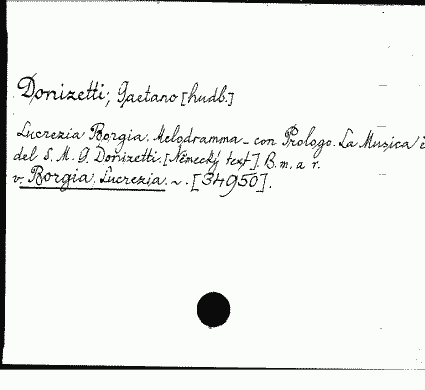 Donizetti, Gaetano [hudb.]
Lucrezia Borgia. Melodramma - con Prologo. La Musica è
del S. M. G. Donizetti. [Německý text]. B. m. a r.
v. Borgia, Lucrezia. ~. [34950].